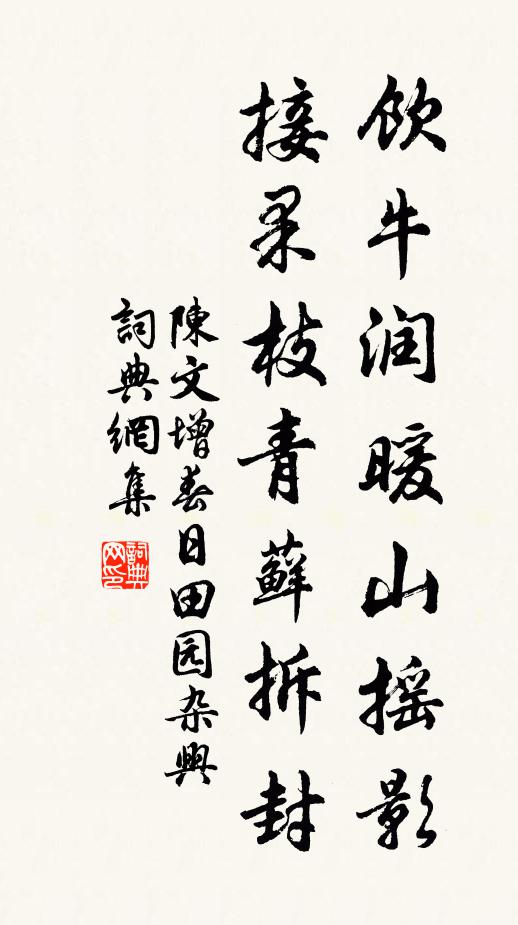 饮牛润暖山摇影
接果枝青蘚拆封
陳文增春日田园杂興
詞典網集
詞典网印